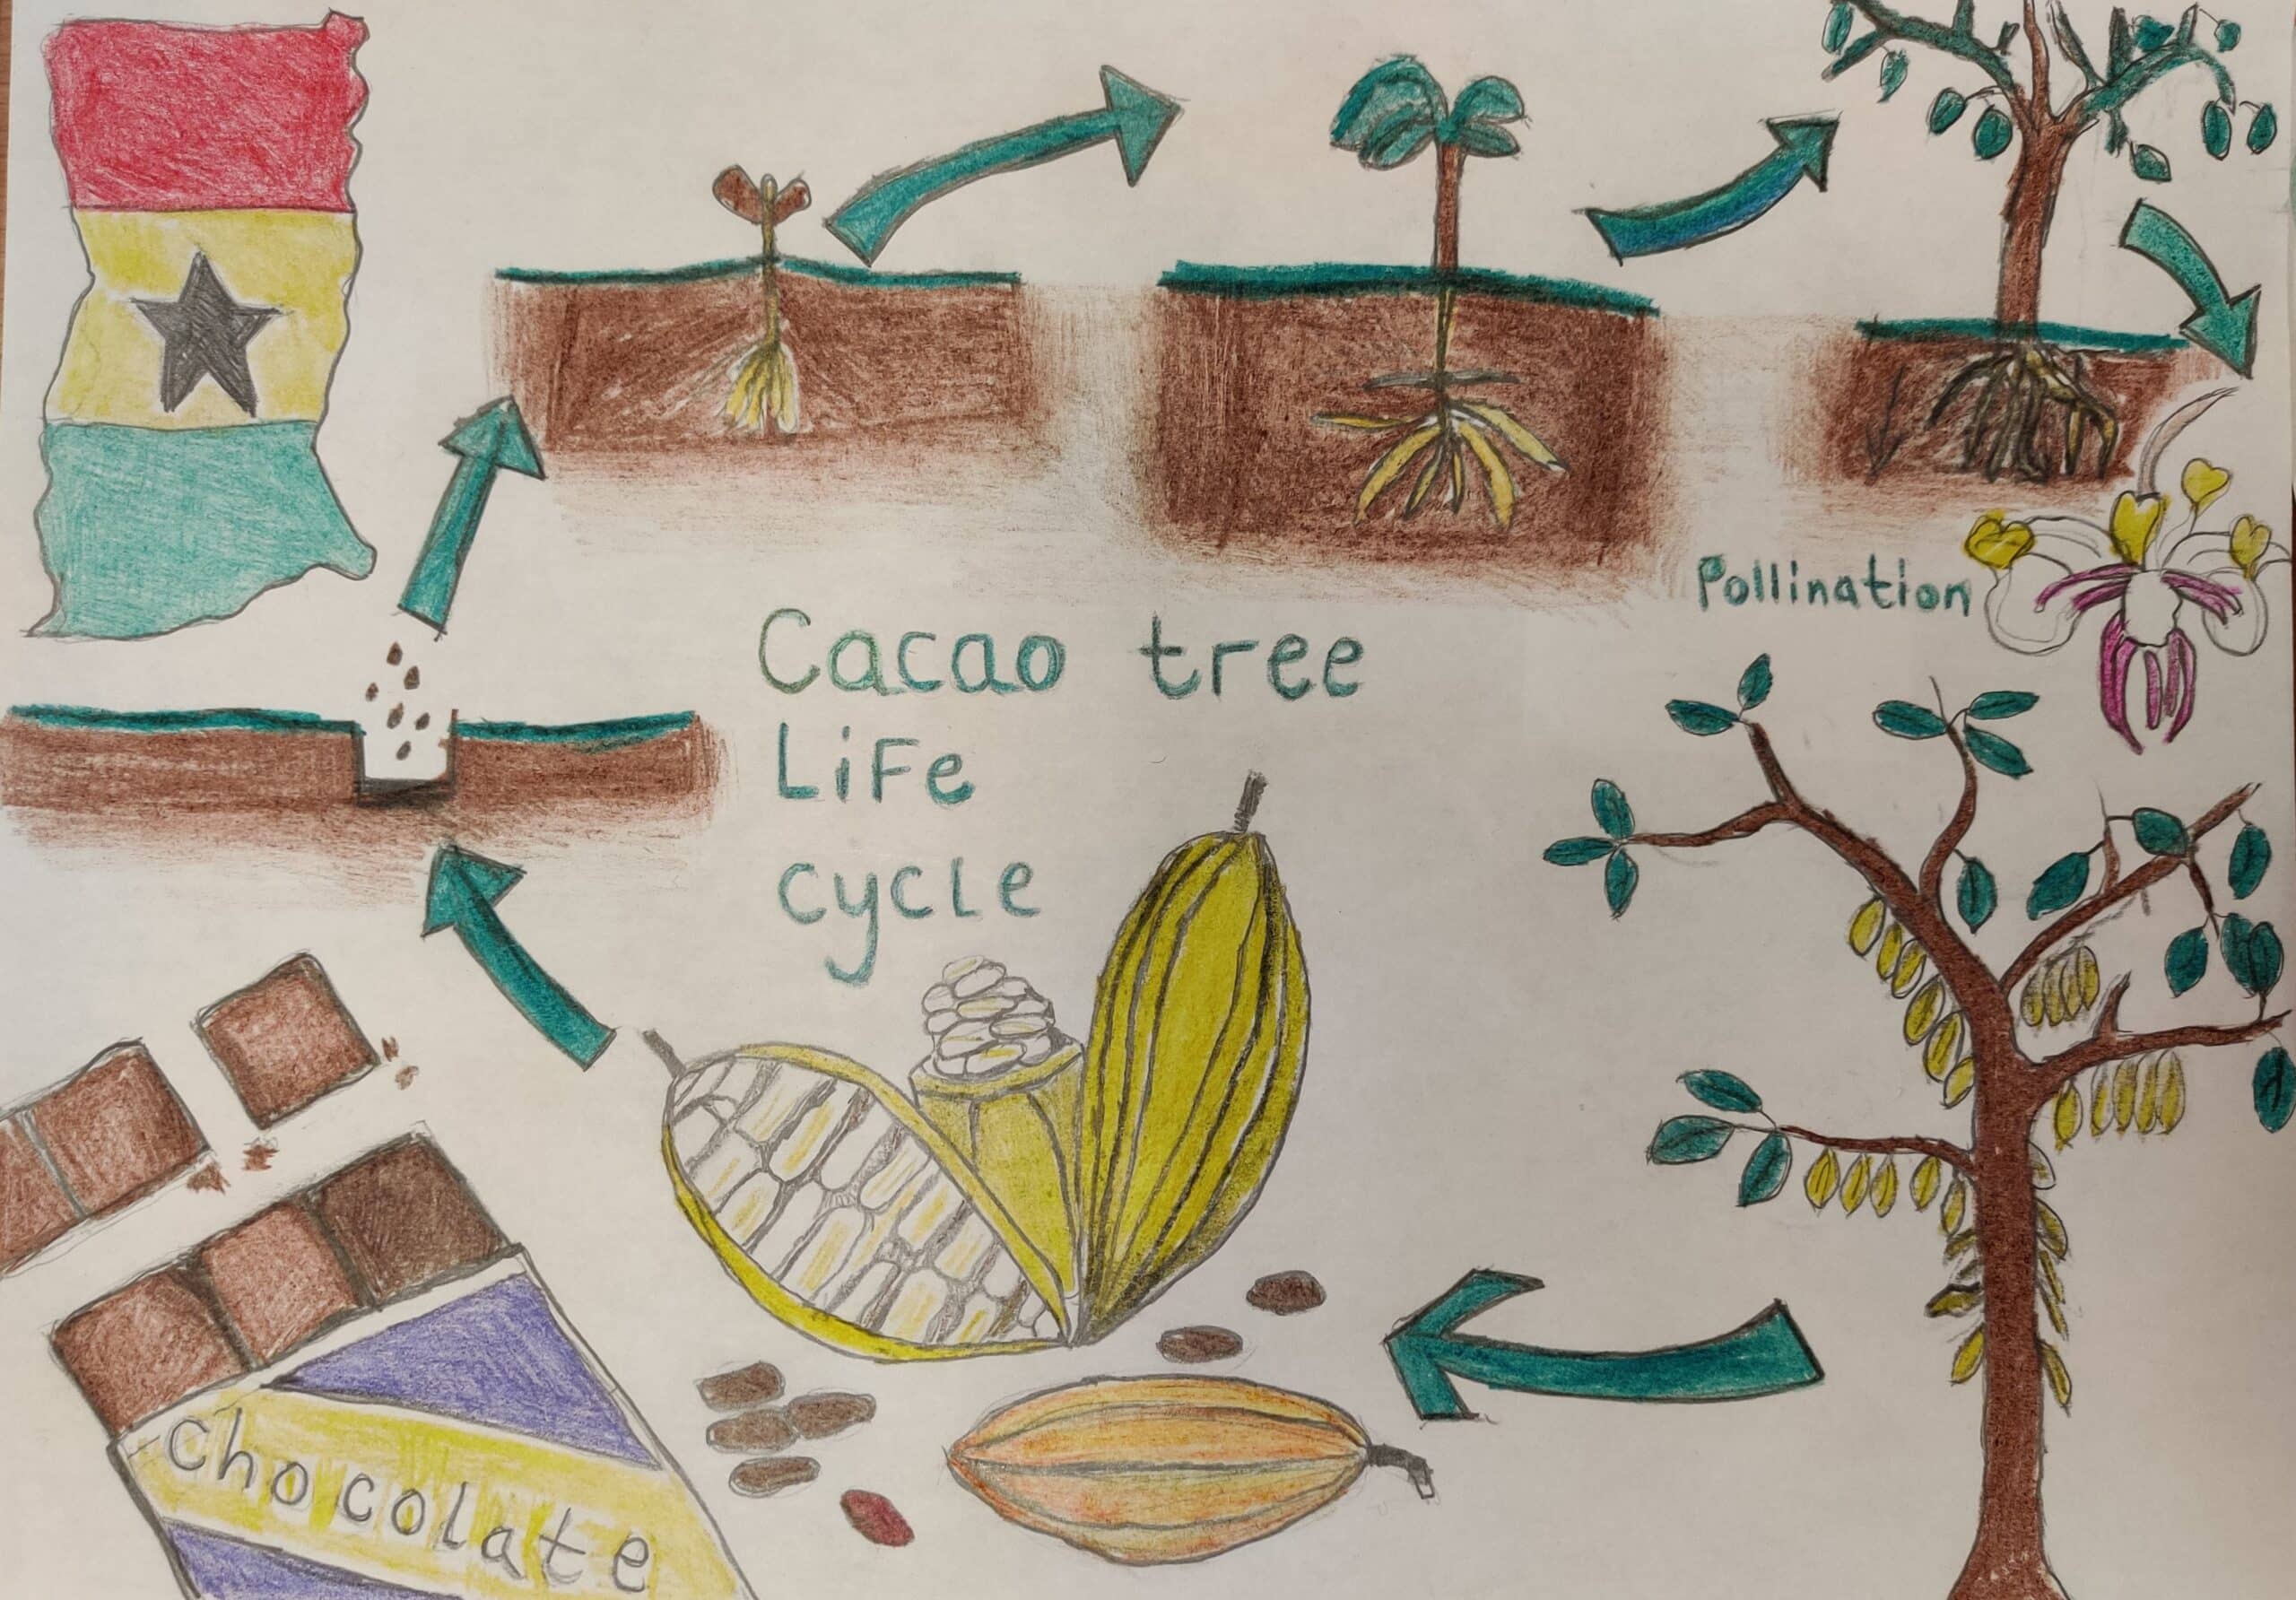 Pollination
Cacao tree
Life
cycle
chocolate